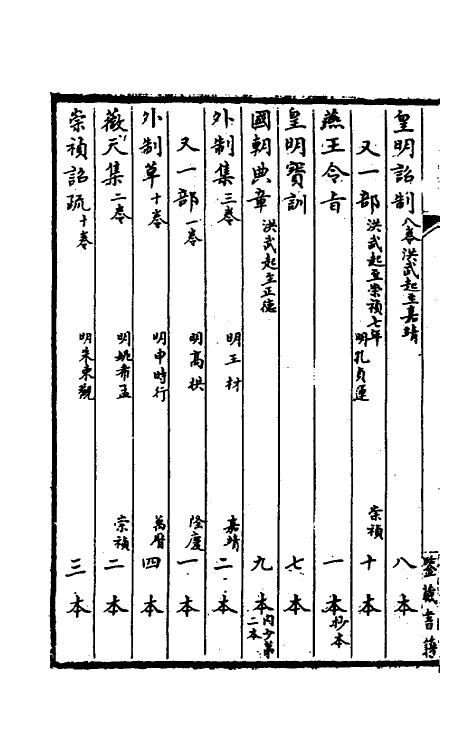 皇明詔制 八卷洪武起至嘉靖 八本
又一部 洪武起至崇禎七年 明孔貞運 崇禎 十本
燕王令旨 一本 抄本
皇明寶訓 七本
國朝典章 洪武起至正德 九本 內少第二本
外制集 三卷 明王材 嘉靖 二本
又一部 一卷 明高拱 隆慶 一本
外制草 十卷 明申時行 萬曆 四本
薇天集 二卷 明姚希孟 崇禎 二本
崇禎詔疏 十卷 明朱東觀 三本
鑒藏書籍